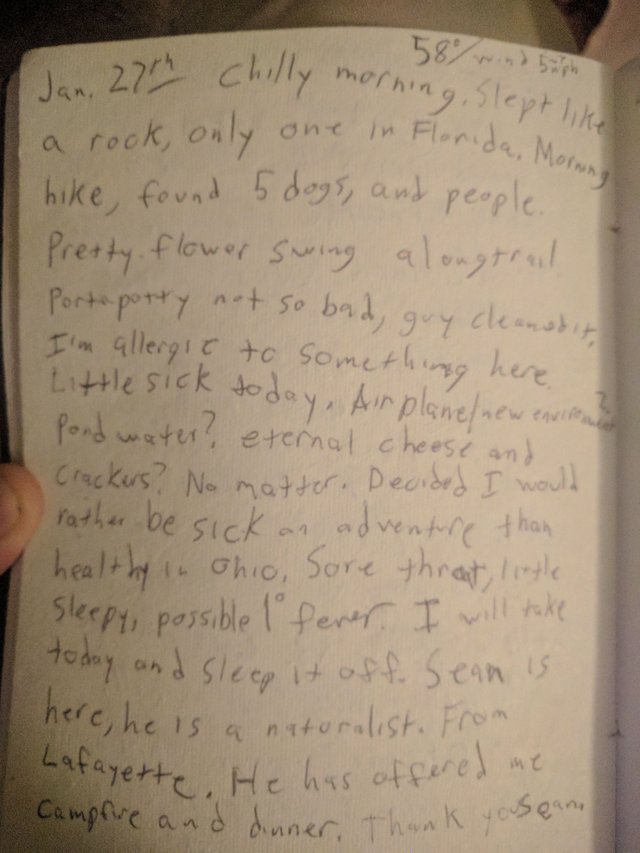 58°/wind 5mph
Jan. 27th Chilly morning. Slept like
a rock, only one in Florida. Morning
hike, found 5 dogs, and people.
Pretty flower swing along trail
Portapotty not so bad, guy cleaned it.
I'm allergic to something here.
Little sick today. Airplane/new environment?
Pond water? eternal cheese and
crackers? No matter. Decided I would
rather be sick on adventure than
healthy in Ohio. Sore throat, little
sleepy, possible 1° fever. I will take
today and sleep it off. Sean is
here, he is a naturalist. From
Lafayette. He has offered me
campfire and dinner. Thank you Sean.